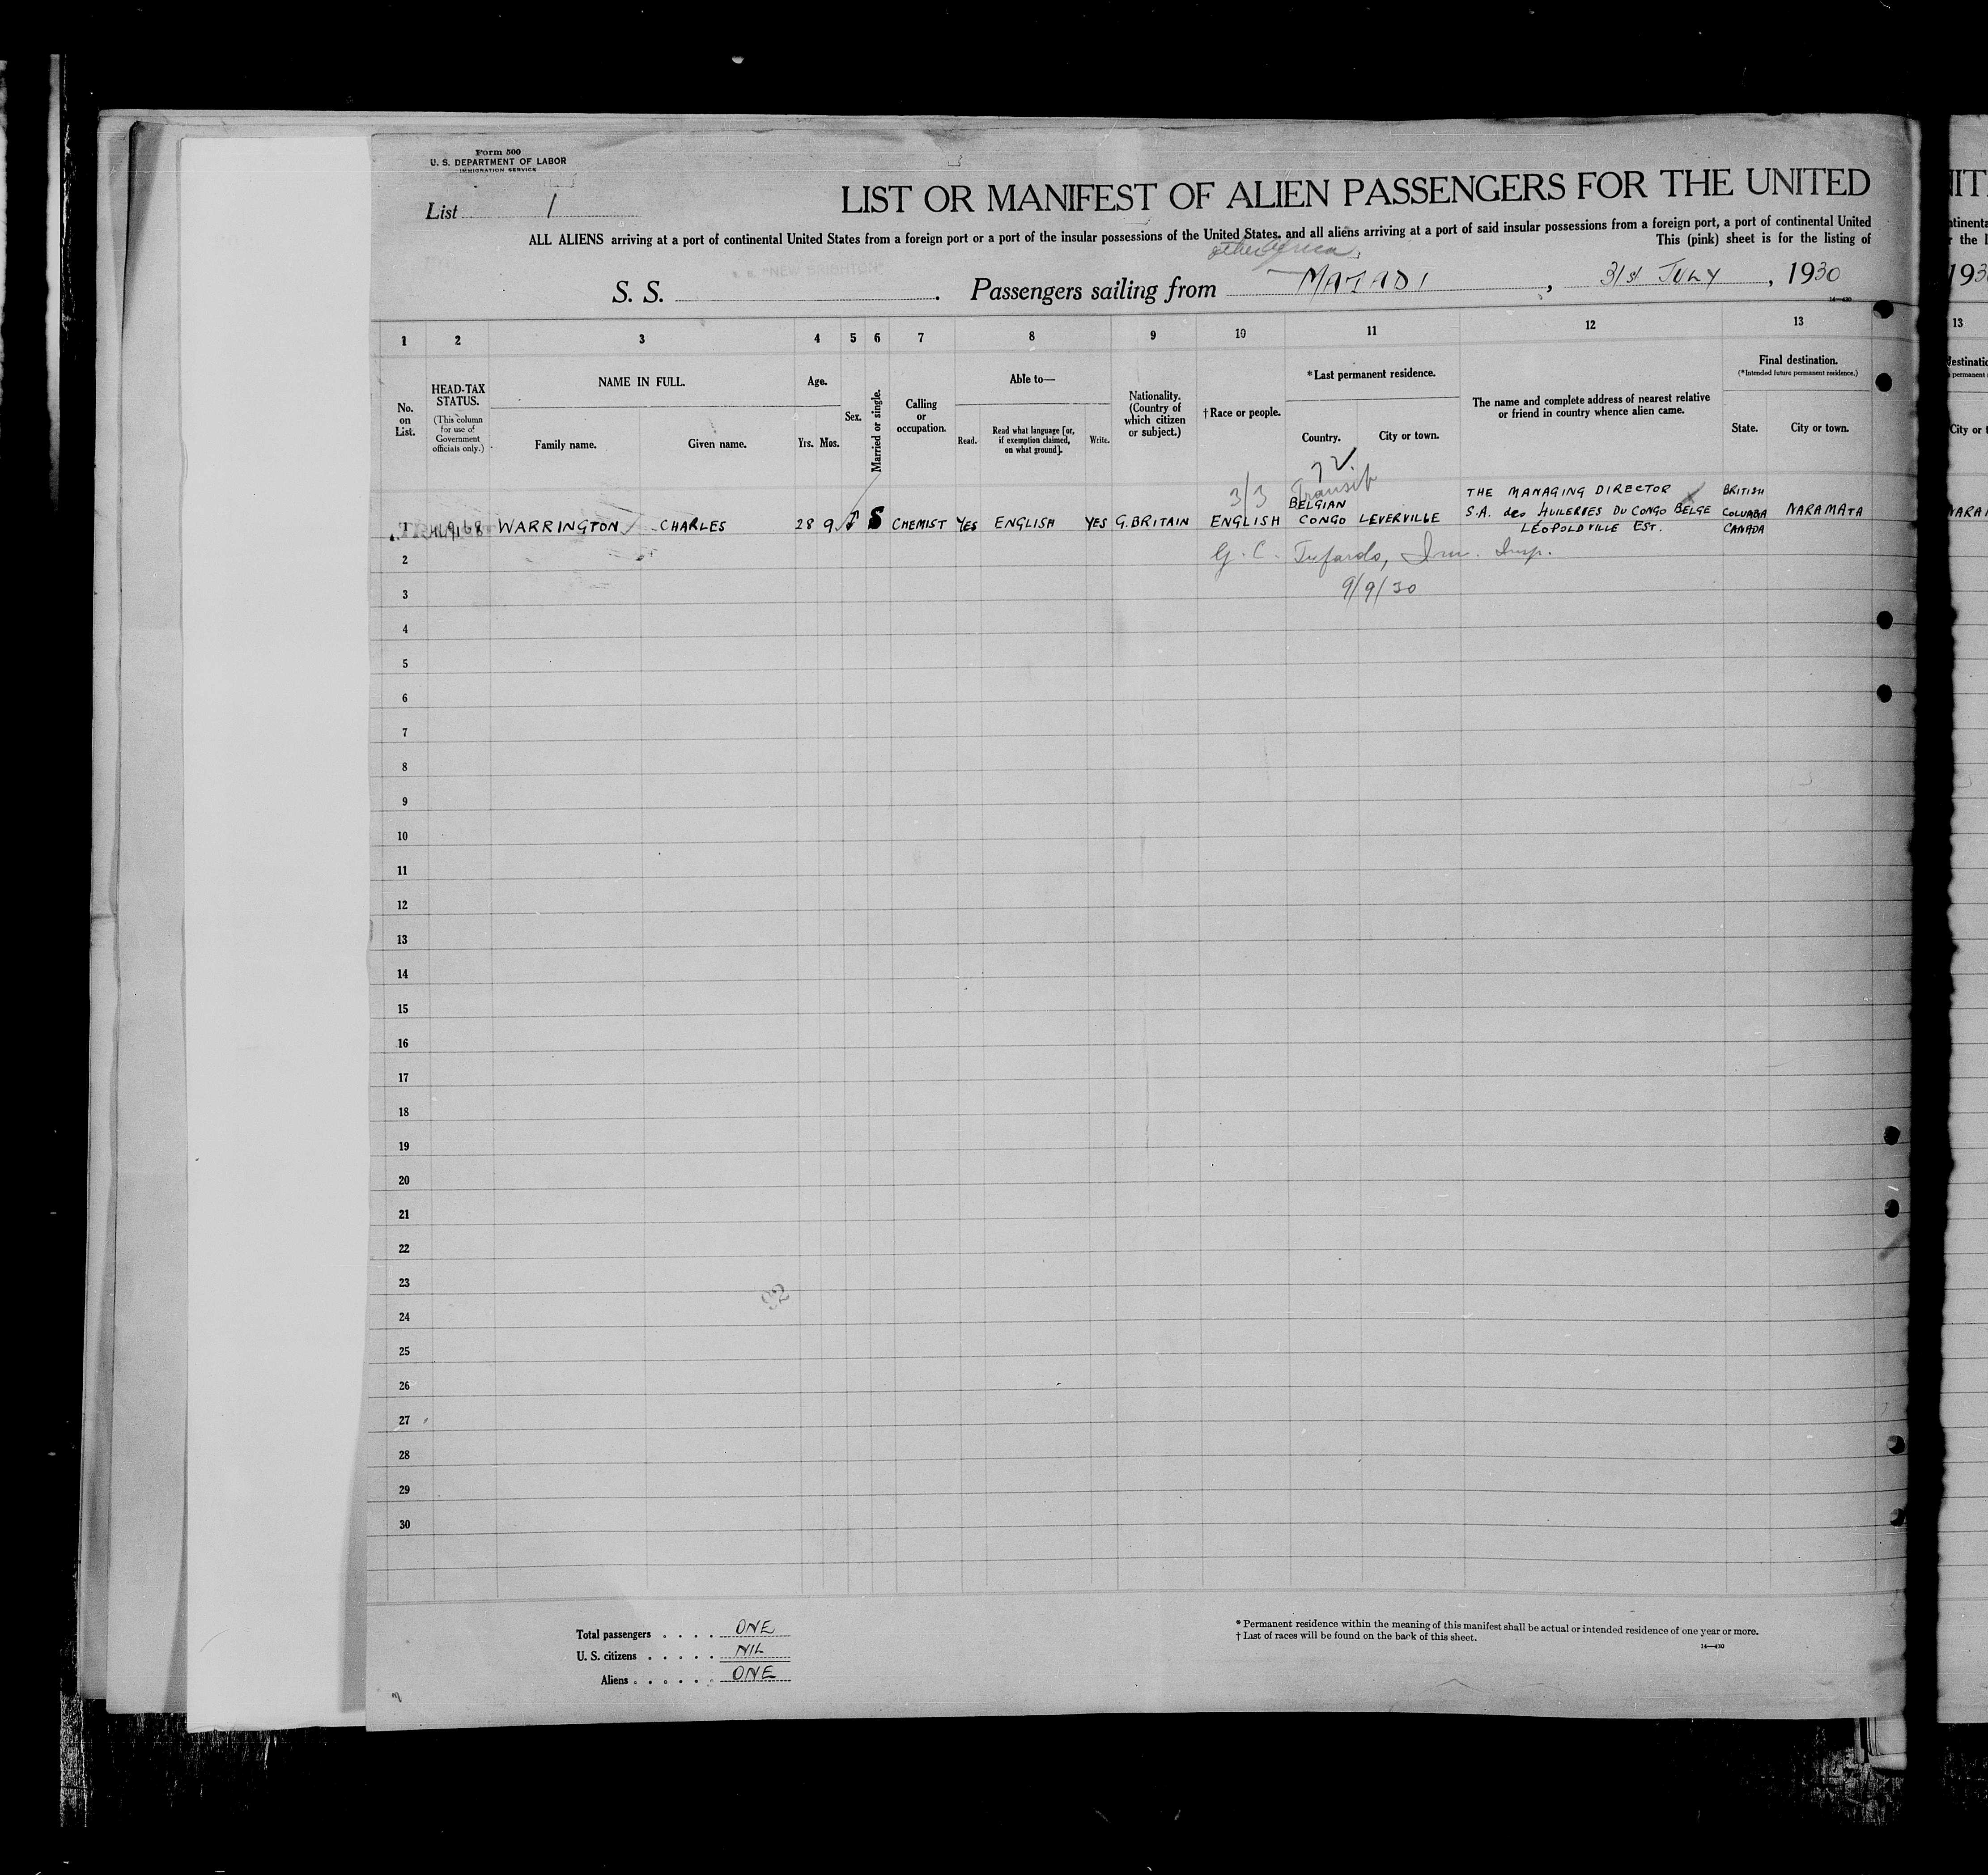 Form 500
U. S. DEPARTMENT OF LABOR
IMMIGRATION SERVICE
List 1
LIST OR MANIFEST OF ALIEN PASSENGERS FOR THE UNITED
ALL ALIENS arriving at a port of continental United States from a foreign port or a port of the insular possessions of the United States, and all aliens arriving at a port of said insular possessions from a foreign port, a port of continental United
This (pink) sheet is for the listing of
other Africa
S. S. "NEW BRIGHTON"
S. S. . Passengers sailing from MATADI , 31st JULY , 1930
1 2 3 4 5 6 7 8 9 10 11 12 13
No. on List.
HEAD-TAX STATUS.
(This column for use of Government officials only.)
NAME IN FULL.
Family name. Given name.
Age.
Yrs. Mos.
Sex.
Married or single.
Calling or occupation.
Able to—
Read. Read what language [or, if exemption claimed, on what ground]. Write.
Nationality. (Country of which citizen or subject.)
†Race or people.
*Last permanent residence.
Country. City or town.
The name and complete address of nearest relative or friend in country whence alien came.
Final destination.
(*Intended future permanent residence.)
State. City or town.
3/3 Transit
WARRINGTON CHARLES 28 9 S CHEMIST YES ENGLISH YES G.BRITAIN ENGLISH BELGIAN CONGO LEVERVILLE THE MANAGING DIRECTOR S.A. des HUILERIES DU CONGO BELGE LÉOPOLDVILLE EST. BRITISH COLUMBA CANADA NARAMATA
2 G. C. Tufardo, Im. Insp.
3 9/9/30
4
5
6
7
8
9
10
11
12
13
14
15
16
17
18
19
20
21
22
23
92
24
25
26
27
28
29
30
Total passengers . . . . ONE
U. S. citizens . . . . . NIL
Aliens . . . . . . ONE
* Permanent residence within the meaning of this manifest shall be actual or intended residence of one year or more.
† List of races will be found on the back of this sheet.
14—430